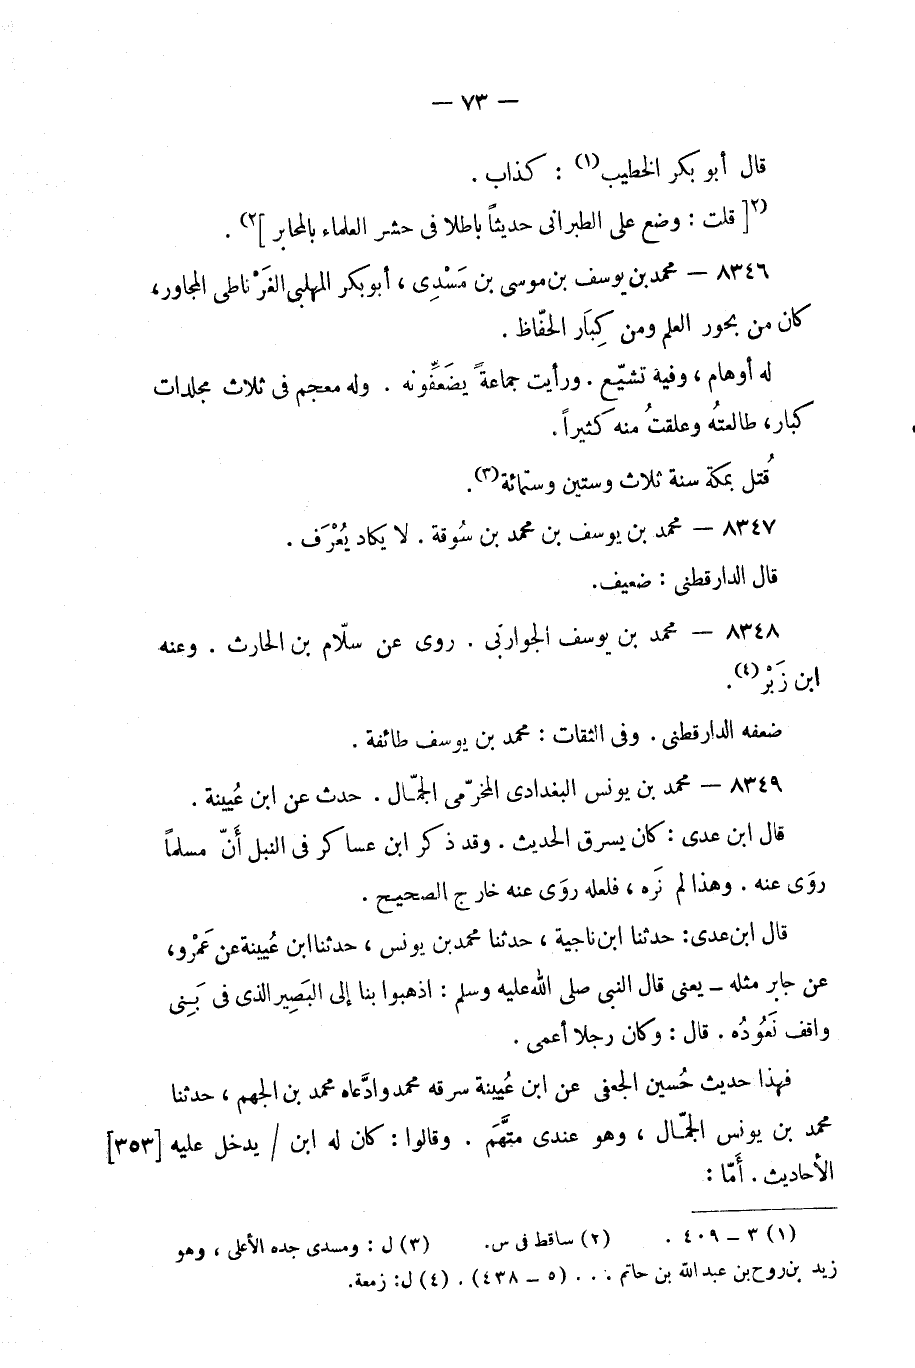 — ٧٣ —
قال أبو بكر الخطيب(١) : كذاب .
(٢[ قلت : وضع على الطبرانى حديثاً باطلا فى حشر العلماء بالمحابر ]٢) .
٨٣٤٦ — محمد بن يوسف بن موسى بن مَسْدِى ، أبو بكر المهلبى الغَرْناطى المجاور،
كان من بحور العلم ومن كِبَار الحفّاظ .
له أوهام ، وفية تشيّع . ورأيت جماعةً يضَعِّفُونه . وله معجم فى ثلاث مجلدات
كبار، طالعتهُ وعلقتُ منه كثيراً .
قُتل بمكة سنة ثلاث وستين وستمائة(٣).
٨٣٤٧ — محمد بن يوسف بن محمد بن سُوقة . لا يكاد يُعْرَف .
قال الدارقطنى : ضعيف.
٨٣٤٨ — محمد بن يوسف الجواربى . روى عن سلّام بن الحارث . وعنه
ابن زَبْر(٤).
ضعفه الدارقطنى . وفى الثقات : محمد بن يوسف طائفة .
٨٣٤٩ — محمد بن يونس البغدادى المخرّمى الجمّال . حدث عن ابن عُيينة .
قال ابن عدى : كان يسرق الحديث . وقد ذكر ابن عساكر فى النبل أَنّ مسلماً
روَى عنه . وهذا لم نَره ، فلعله روَى عنه خارج الصحيح .
قال ابن عدى: حدثنا ابن ناجية ، حدثنا محمد بن يونس ، حدثنا ابن عُيينة عن عَمْرو،
عن جابر مثله – يعنى قال النبى صلى الله عليه وسلم : اذهبوا بنا إلى البَصِير الذى فى بَنِى
واقف نَعُودُه . قال : وكان رجلا أعمى .
فهذا حديث حُسين الجعفى عن ابن عُيينة سرقه محمد وادَّعاه محمد بن الجهم ، حدثنا
محمد بن يونس الجمّال ، وهو عندى متَّهَم . وقالوا : كان له ابن / يدخل عليه [٣٥٣]
الأحاديث . أَمّا :
(١) ٣ – ٤٠٩ . (٢) ساقط فى س. (٣) ل : ومسدى جده الأعلى ، وهو
زيد بن روح بن عبد الله بن حاتم ... (٥ – ٤٣٨) . (٤) ل: زمعة.